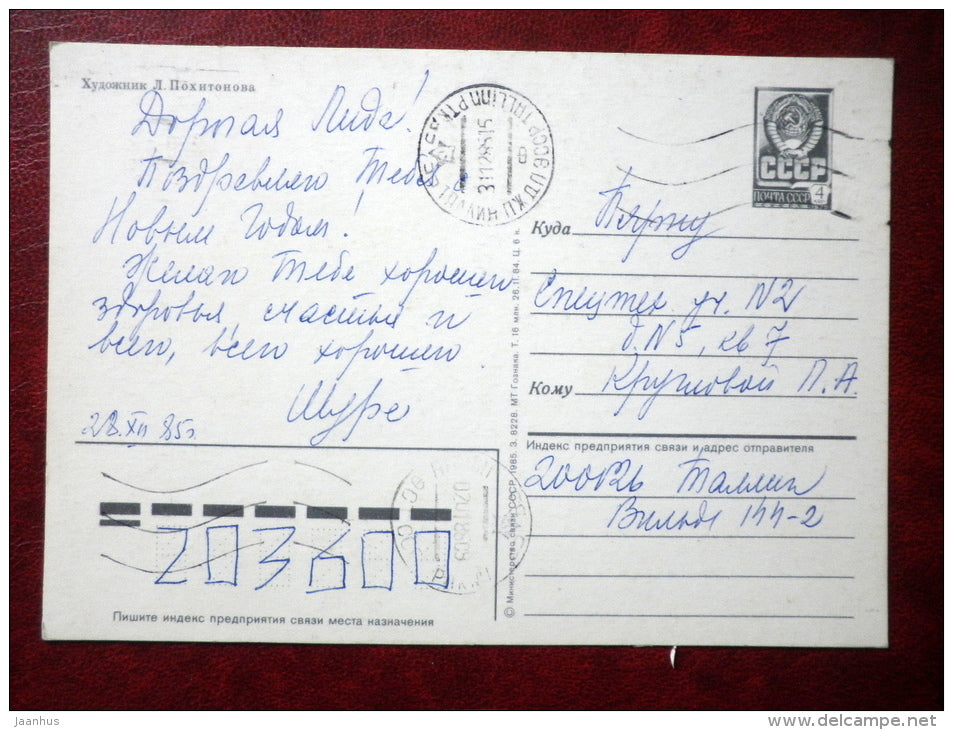 Художник Л. Похитонова
Дорогая Лида!
Поздравляю Тебя с
Новым Годом!
Желаю Тебе хорошего
здоровья, счастья и
всего, всего хорошего
Шура
28.XII 85г.
31128515
СССР TALLINN PTK
СССР
ПОЧТА СССР
4
Куда Пярну
Спецтех. уч. N2
д. N5, кв 7
Кому Кругловой Л.А.
Индекс предприятия связи и адрес отправителя
200026 Таллин
Вильде 144-2
203600
Пишите индекс предприятия связи места назначения
© Министерство связи СССР. 1985. З. 8228. МТ Гознака. Т. 16 млн. 26.11.84. Ц. 6 к.
jaanhus
www.delcampe.net